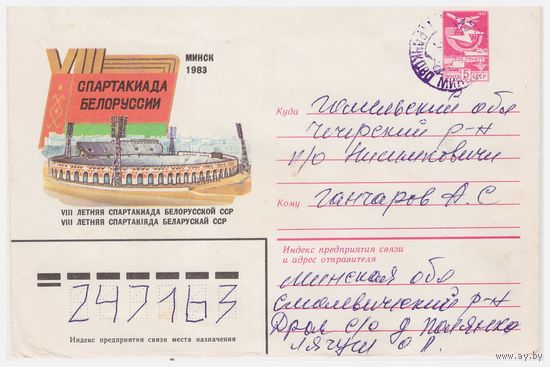 VIII
МИНСК
1983
СПАРТАКИАДА
БЕЛОРУССИИ
VIII ЛЕТНЯЯ СПАРТАКИАДА БЕЛОРУССКОЙ ССР
VIII ЛЕТНЯЯ СПАРТАКІЯДА БЕЛАРУСКАЙ ССР
ПОЧТА 5 СССР
Куда Гомельский обл
Чечерский р-н
п/о Нисимковичи
Кому Ганчаров А.С
Индекс предприятия связи
и адрес отправителя
Минская обл
Смолевический р-н
с/о д
О П.
247163
Индекс предприятия связи места назначения
www.ay.by